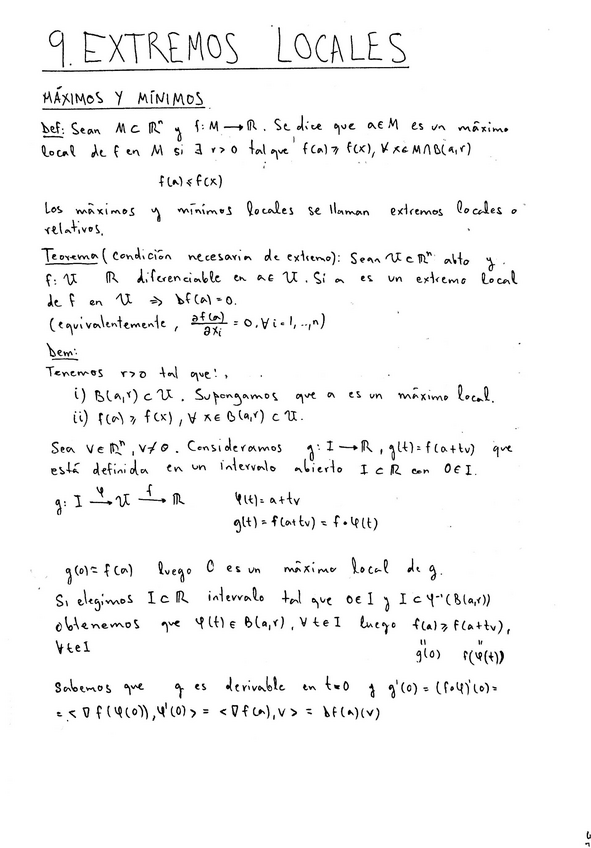 9. EXTREMOS LOCALES
MÁXIMOS Y MÍNIMOS
Def: Sean M ⊂ ℝⁿ y f: M → ℝ. Se dice que a ∈ M es un máximo
local de f en M si ∃ r > 0 tal que f(a) ⩾ f(x), ∀ x ∈ M ∩ B(a,r)
f(a) ⩽ f(x)
Los máximos y mínimos locales se llaman extremos locales o
relativos.
Teorema (condición necesaria de extremo): Sean U ⊂ ℝⁿ abto y
f: U ℝ diferenciable en a ∈ U. Si a es un extremo local
de f en U ⇒ Df(a) = 0.
(equivalentemente, ∂f(a)/∂xᵢ = 0, ∀ i = 1, .., n)
Dem:
Tenemos r > 0 tal que:
i) B(a,r) ⊂ U. Supongamos que a es un máximo local.
ii) f(a) ⩾ f(x), ∀ x ∈ B(a,r) ⊂ U.
Sea v ∈ ℝⁿ, v ≠ 0. Consideramos g: I → ℝ, g(t) = f(a+tv) que
está definida en un intervalo abierto I ⊂ ℝ con 0 ∈ I.
g: I →^φ U →^f ℝ φ(t) = a + tv
g(t) = f(a+tv) = f∘φ(t)
g(0) = f(a) luego 0 es un máximo local de g.
Si elegimos I ⊂ ℝ intervalo tal que 0 ∈ I y I ⊂ φ⁻¹(B(a,r))
obtenemos que φ(t) ∈ B(a,r), ∀ t ∈ I luego f(a) ⩾ f(a+tv),
∀ t ∈ I g(0) f(φ(t))
Sabemos que g es derivable en t=0 y g'(0) = (f∘φ)'(0) =
= <∇f(φ(0)), φ'(0)> = <∇f(a), v> = Df(a)(v)